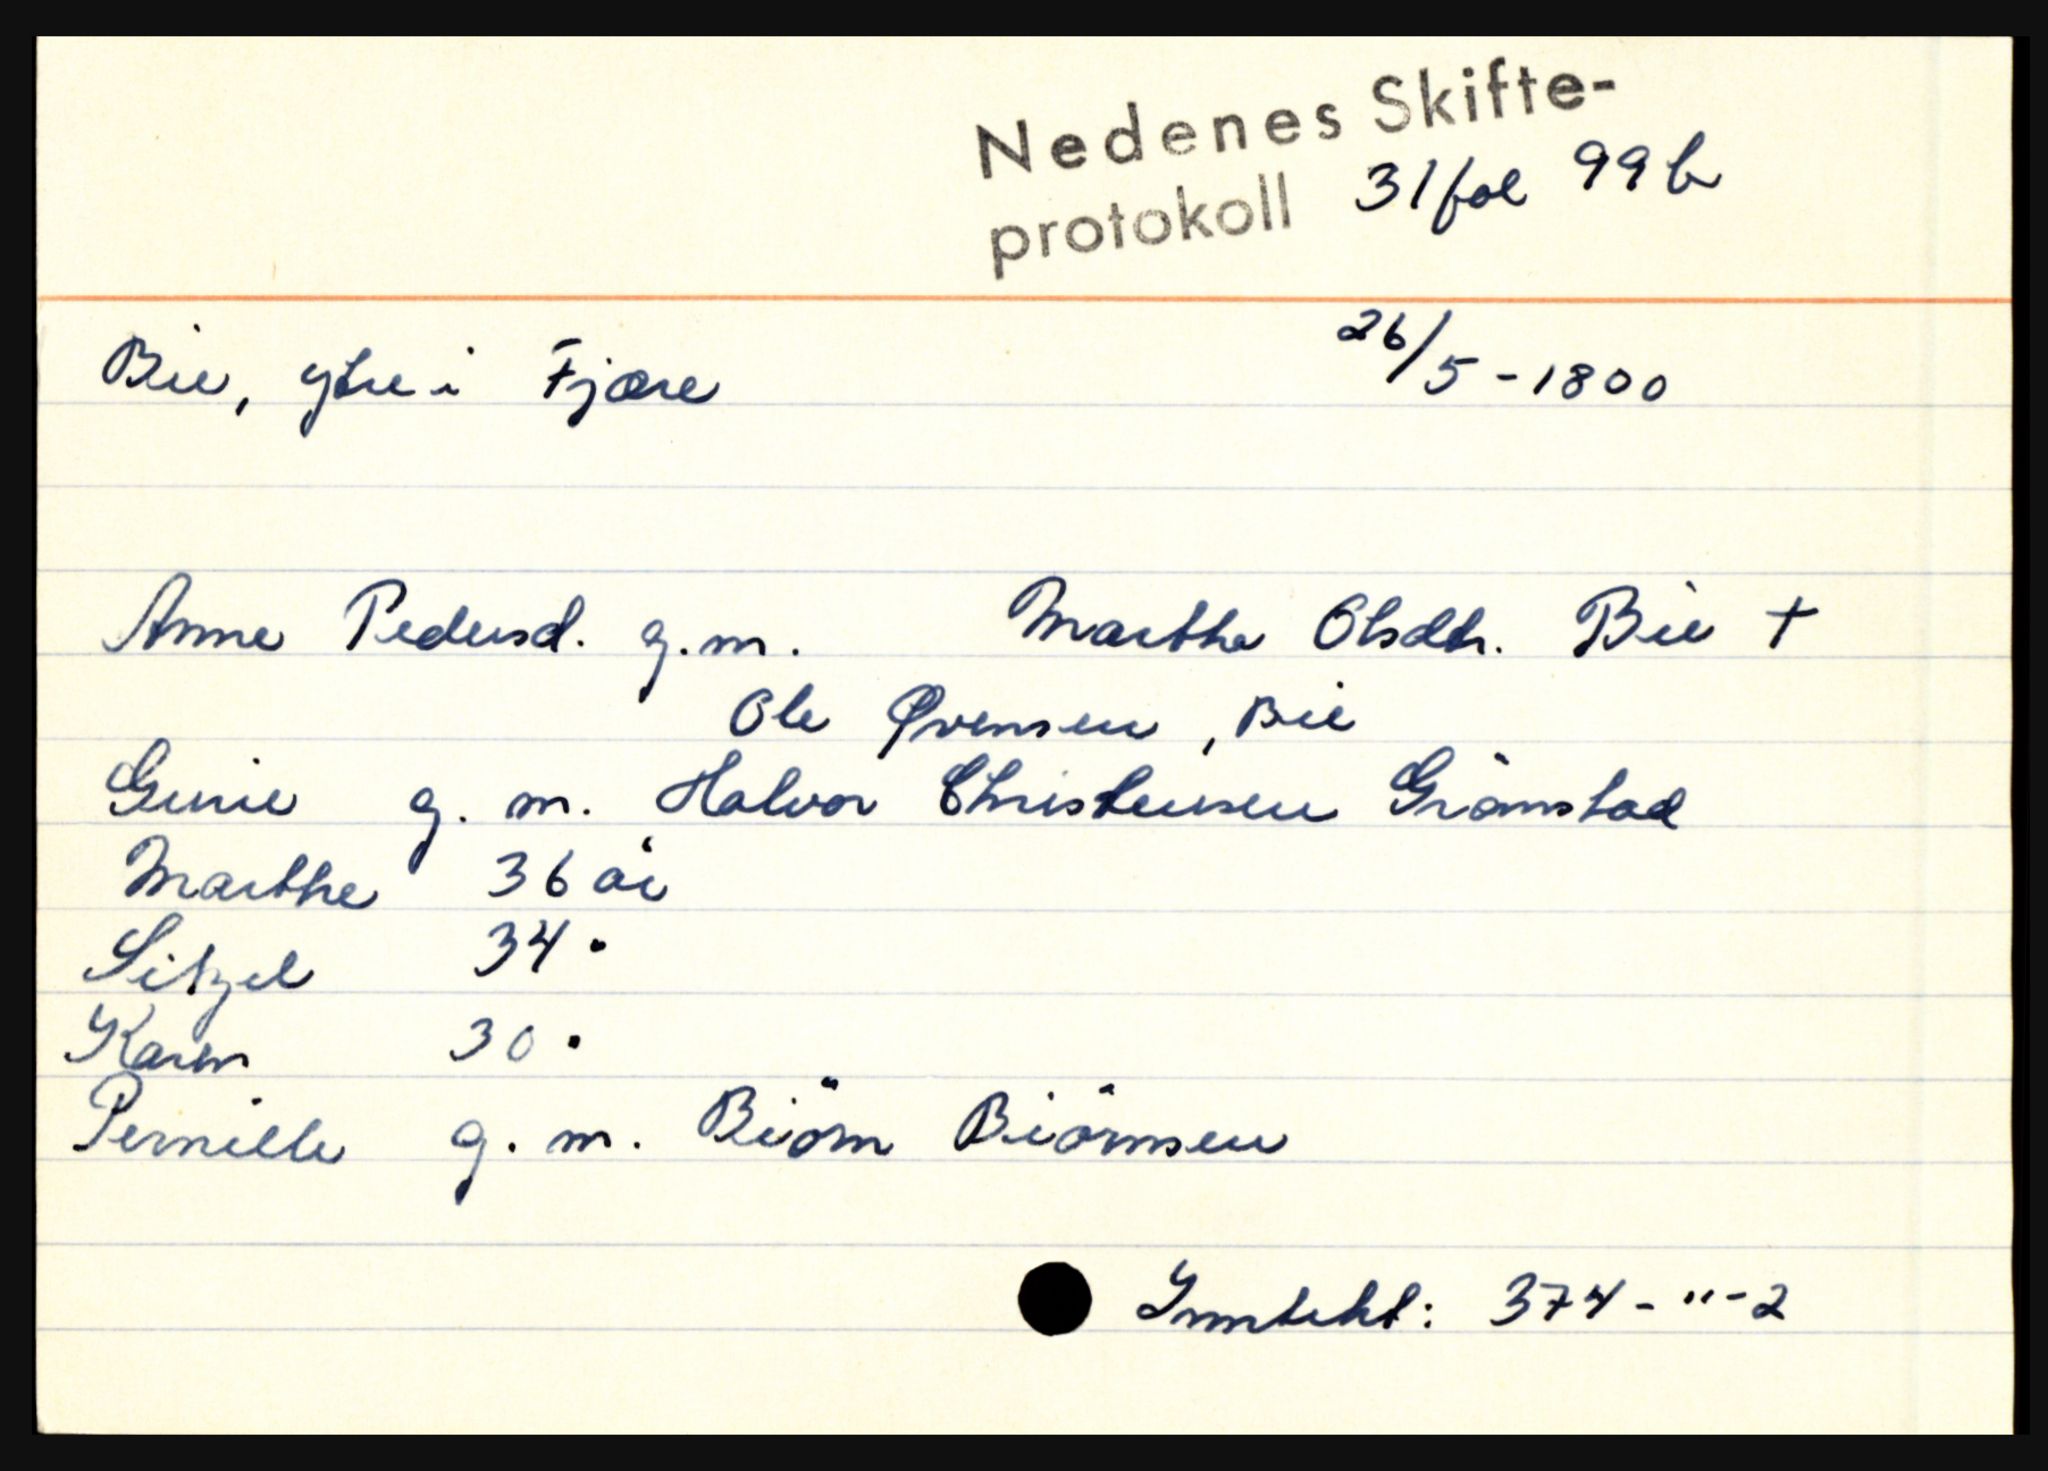 Nedenes Skifte-
protokoll 31 fol 99 b
Bie, ytre i Fjære 26/5-1800
Anne Pedersd. g.m. Marthe Olsdtr. Bie †
Ole Øvensen, Bie
Gurie g. m. Halvor Christensen Grömstad
Marthe 36 år
Sitzel 34 "
Karen 30 "
Pernille g. m. Biörn Biörnsen
Inntekt: 374-"-2